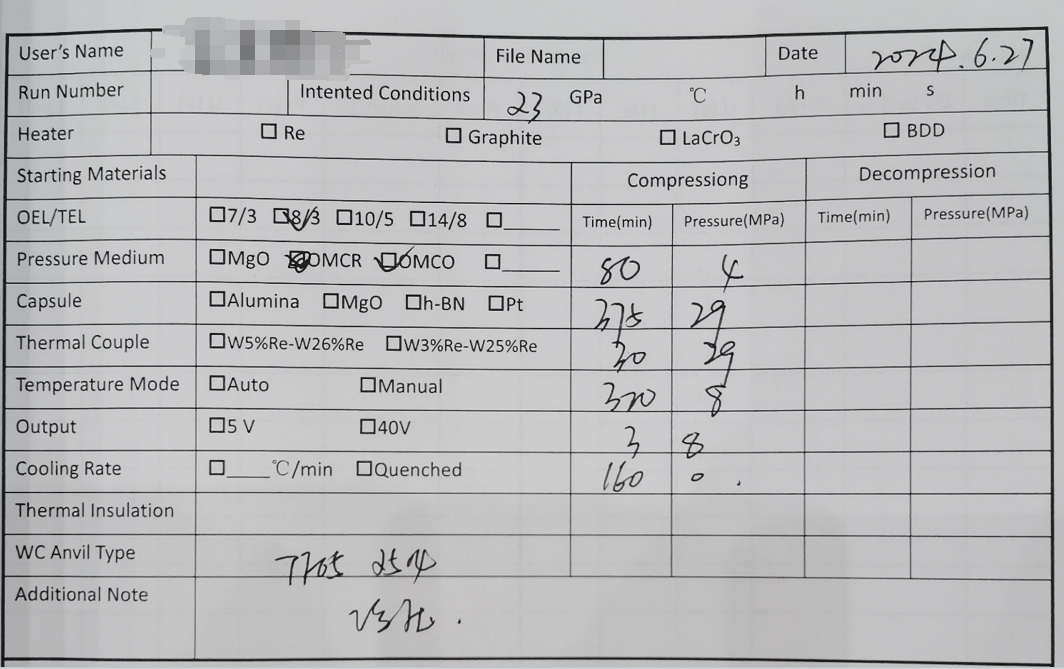 User's Name File Name Date 2024.6.27
Run Number Intented Conditions 23 GPa ℃ h min s
Heater □ Re □ Graphite □ LaCrO₃ □ BDD
Starting Materials Compressiong Decompression
OEL/TEL □7/3 ☑8/3 □10/5 □14/8 □______ Time(min) Pressure(MPa) Time(min) Pressure(MPa)
Pressure Medium □MgO OMCR ☑OMCO □______ 80 4
Capsule □Alumina □MgO □h-BN □Pt 375 29
Thermal Couple □W5%Re-W26%Re □W3%Re-W25%Re 30 29
Temperature Mode □Auto □Manual 8
Output □5 V □40V 3 8
Cooling Rate □____℃/min □Quenched 160 0
Thermal Insulation
WC Anvil Type
Additional Note